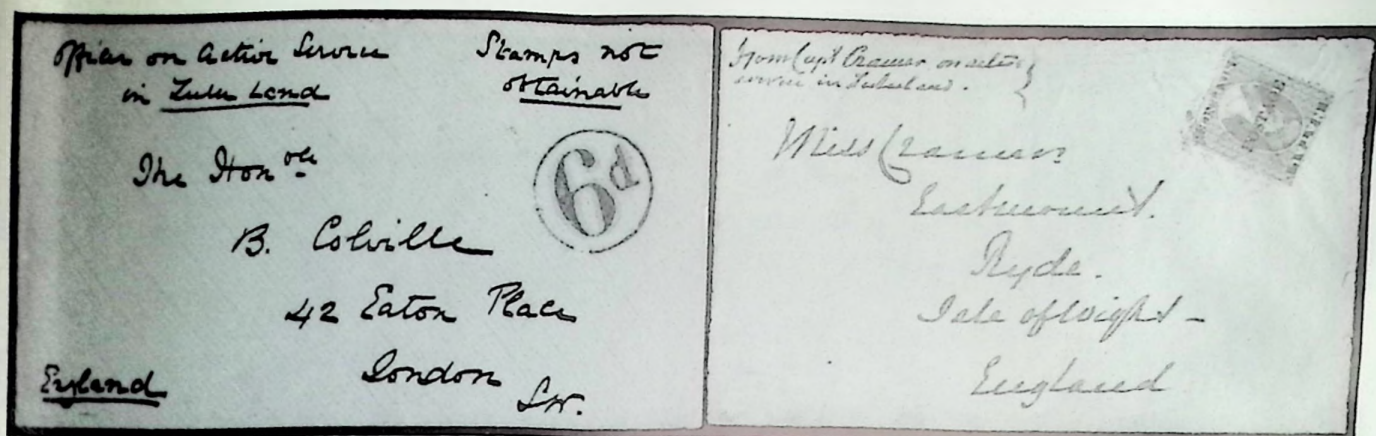 Officer on Active Service
in Zulu Land
Stamps not
obtainable
The Honble
B. Colville
42 Eaton Place
London
S.W.
England
6d
From Capt Cramer on active
service in Zululand.
Miss Cramer
Eastmount.
Ryde.
Isle of Wight -
England
POSTAGE